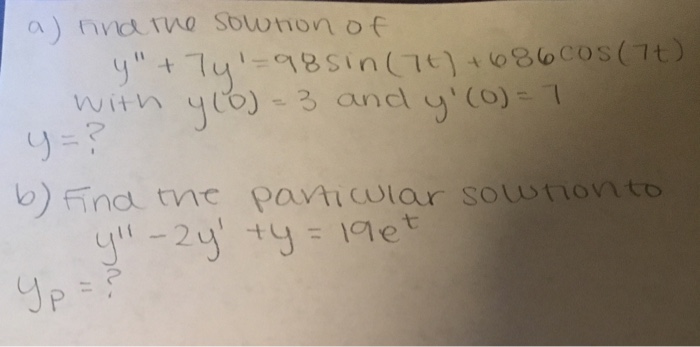 a) Find the solution of
y'' + 7y' = 98sin(7t) + 686cos(7t)
with y(0) = 3 and y'(0) = 7
y = ?
b) Find the particular solution to
y'' - 2y' + y = 19e^t
y_p = ?